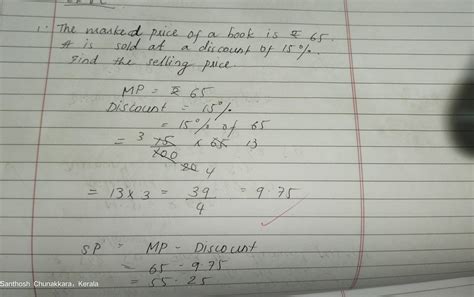 1. The marked price of a book is ₹ 65.
It is sold at a discount of 15%.
Find the selling price.
MP = ₹ 65
Discount = 15%
= 15% of 65
= 3 15/100 × 65 13
20 4
= 13 × 3 = 39/4 = 9.75
SP = MP - Discount
= 65 - 9.75
= 55.25
Santhosh Chunakkara, Kerala